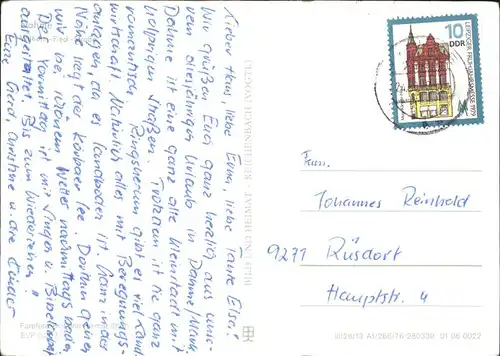 Lieber Hans, liebe Erna, liebe Tante Elsa!
Wir grüßen Euch ganz herzlich aus unse-
rem diesjährigen Urlaub in Dahme/Mark.
Dahme ist eine ganz alte Kleinstadt mit
holprigen Straßen. Trotzdem ist sie ganz
romantisch. Ringsherum gibt es viel Land-
wirtschaft. Natürlich alles mit Beregnungs-
anlagen, da es Sandboden ist. Ganz in der
Nähe liegt der Körbaer See. Dorthin gehen
wir bei schönem Wetter nachmittags baden.
Der Vormittag ist mit Singen u. Bibelarbeit
ausgefüllt. Bis zum Wiedersehen!
Eure Gerd, Christine u. die Kinder
BILD UND HEIMAT REICHENBACH (VOGTL)
10
DDR
LEIPZIGER FRÜHJAHRSMESSE 1979
Fam.
Johannes Reinhold
9271 Rüsdorf
Hauptstr. 4
01 06 0022